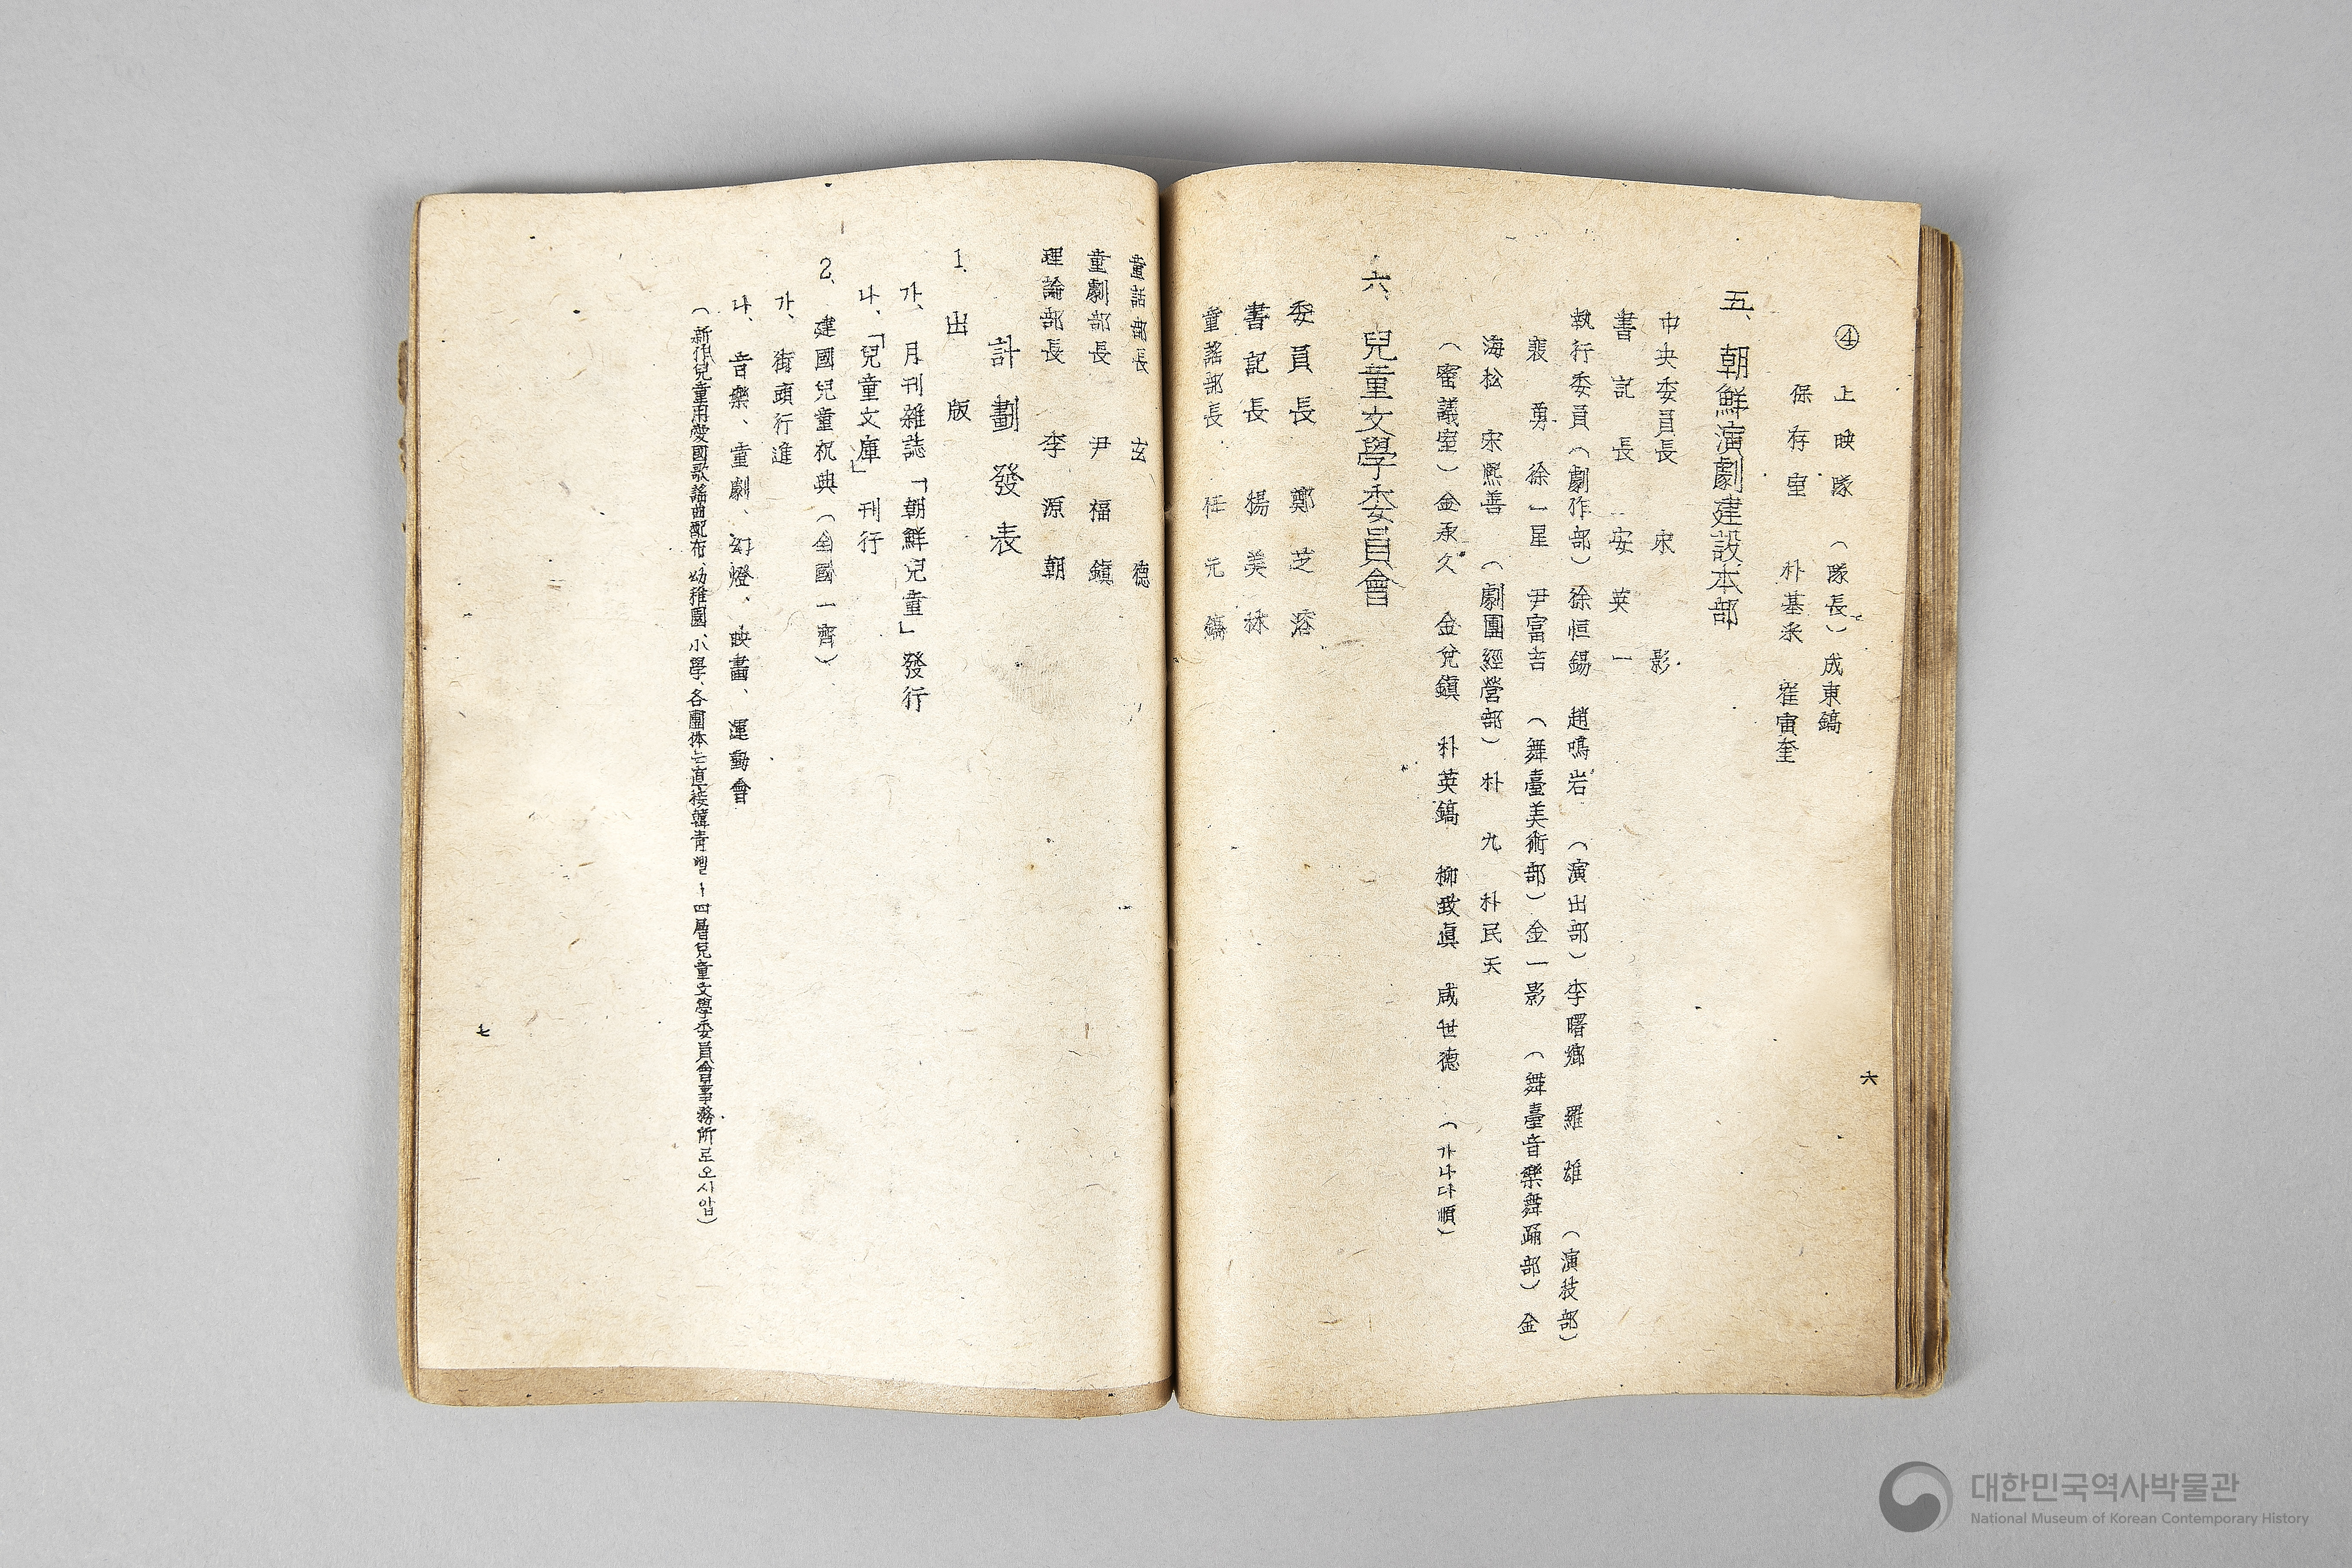 ④ 上映隊 (隊長) 成東鎬
保存室 朴基采 崔寅奎
五、朝鮮演劇建設本部
中央委員長 宋影
書記長 安英一
執行委員 (劇作部) 徐恒錫 趙鳴岩 (演出部) 李曙鄕 羅雄 (演技部)
裵勇 徐一星 尹富吉 (舞臺美術部) 金一影 (舞臺音樂舞踊部) 金
海松 宋熙善 (劇團經營部) 朴九 朴民天
(審議室) 金承久 金兌鎭 朴英鎬 柳致眞 咸世德 (가나다順)
六、兒童文學委員會
委員長 鄭芝溶
書記長 楊美林
童謠部長 任元鎬
六
童話部長 玄德
童劇部長 尹福鎭
理論部長 李源朝
計劃發表
1. 出版
가、月刊雜誌「朝鮮兒童」發行
나、「兒童文庫」刊行
2、建國兒童祝典 (全國一齊)
가、街頭行進
나、音樂、童劇、幻燈、映畵、運動會
(新作兒童用愛國歌謠曲配布、幼稚園、小學、各團体는直接韓靑삘ㅣ四層兒童文學委員會事務所로오시압)
七
대한민국역사박물관
National Museum of Korean Contemporary History